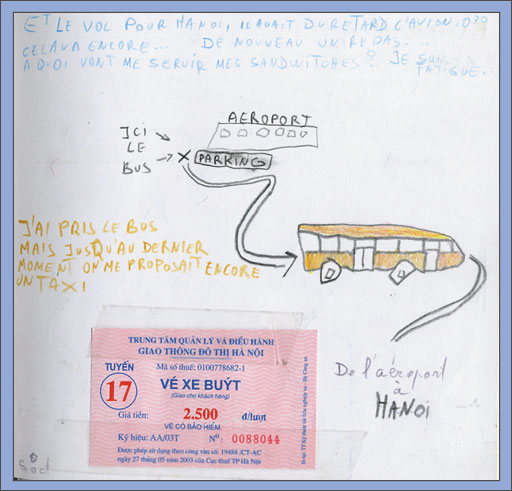 ET LE VOL POUR HANOI, IL AVAIT DU RETARD L'AVION, O
CELA VA ENCORE... DE NOUVEAU UN REPAS...
A QUOI VONT ME SERVIR MES SANDWITCHES? JE SUIS
FATIGUE...
AEROPORT
ICI
LE
BUS
PARKING
J'AI PRIS LE BUS
MAIS JUSQU'AU DERNIER
MOMENT ON ME PROPOSAIT ENCORE
UN TAXI
De l'aéroport
à
HANOI
TRUNG TÂM QUẢN LÝ VÀ ĐIỀU HÀNH
GIAO THÔNG ĐÔ THỊ HÀ NỘI
TUYẾN
17
Mã số thuế: 0100778682-1
VÉ XE BUÝT
(Giao cho khách hàng)
Giá tiền: 2.500 đ/lượt
VÉ CÓ BẢO HIỂM
Ký hiệu: AA/03T Nº 0088044
Được phép sử dụng theo công văn số. 19488 /CT-AC
ngày 27 tháng 05 năm 2003 của Cục thuế TP Hà Nội